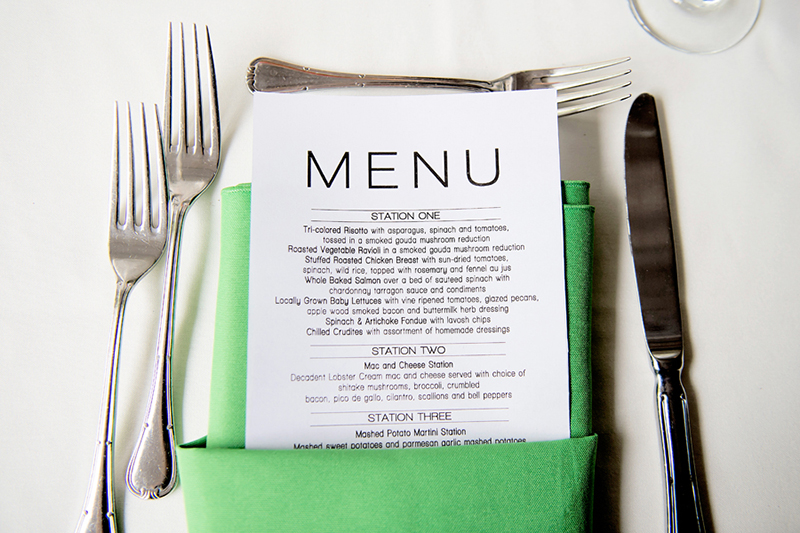 MENU
STATION ONE
Tri-colored Risotto with asparagus, spinach and tomatoes,
tossed in a smoked gouda mushroom reduction
Roasted Vegetable Ravioli in a smoked gouda mushroom reduction
Stuffed Roasted Chicken Breast with sun-dried tomatoes,
spinach, wild rice, topped with rosemary and fennel au jus
Whole Baked Salmon over a bed of sauteed spinach with
chardonnay tarragon sauce and condiments
Locally Grown Baby Lettuces with vine ripened tomatoes, glazed pecans,
apple wood smoked bacon and buttermilk herb dressing
Spinach & Artichoke Fondue with lavosh chips
Chilled Crudites with assortment of homemade dressings
STATION TWO
Mac and Cheese Station
Decadent Lobster Cream mac and cheese served with choice of
shitake mushrooms, broccoli, crumbled
bacon, pico de gallo, cilantro, scallions and bell peppers
STATION THREE
Mashed Potato Martini Station
Mashed sweet potatoes and parmesan garlic mashed potatoes